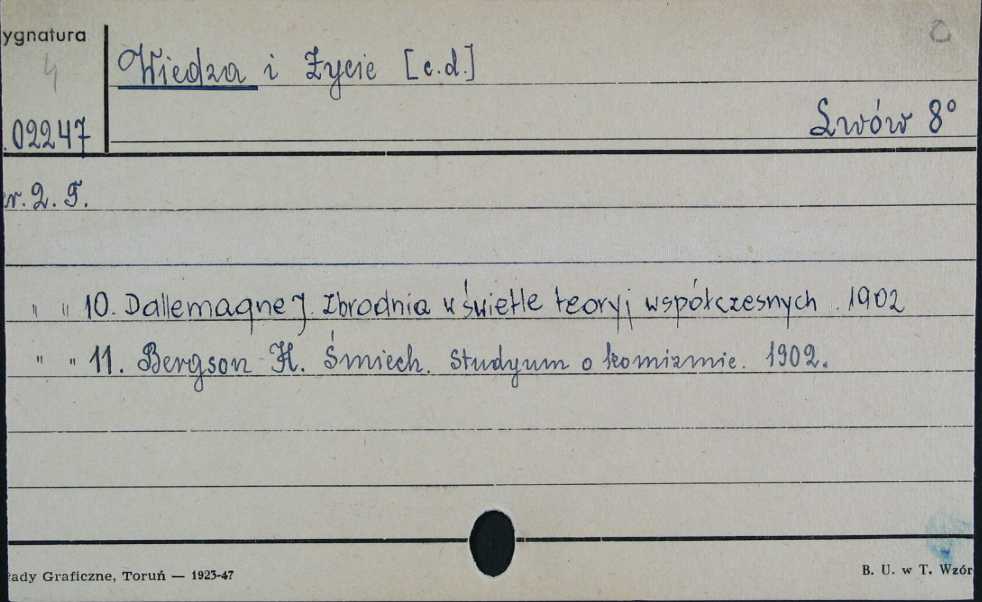 ygnatura
4
Wiedza i Życie [c.d.]
.02247
Lwów 8°
er. 2. T.
" " 10. Dallemagne J. Zbrodnia w świetle teoryj współczesnych . 1902
" " 11. Bergson H. Śmiech. Studyum o komizmie. 1902.
łady Graficzne, Toruń — 1923-47
B. U. w T. Wzór